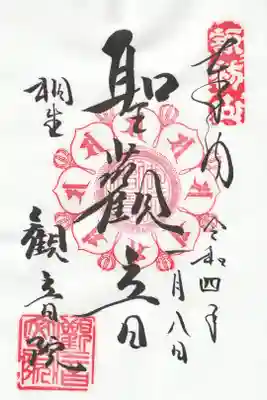 奉拝
令和四年
一月八日
聖觀音
桐生
觀音院